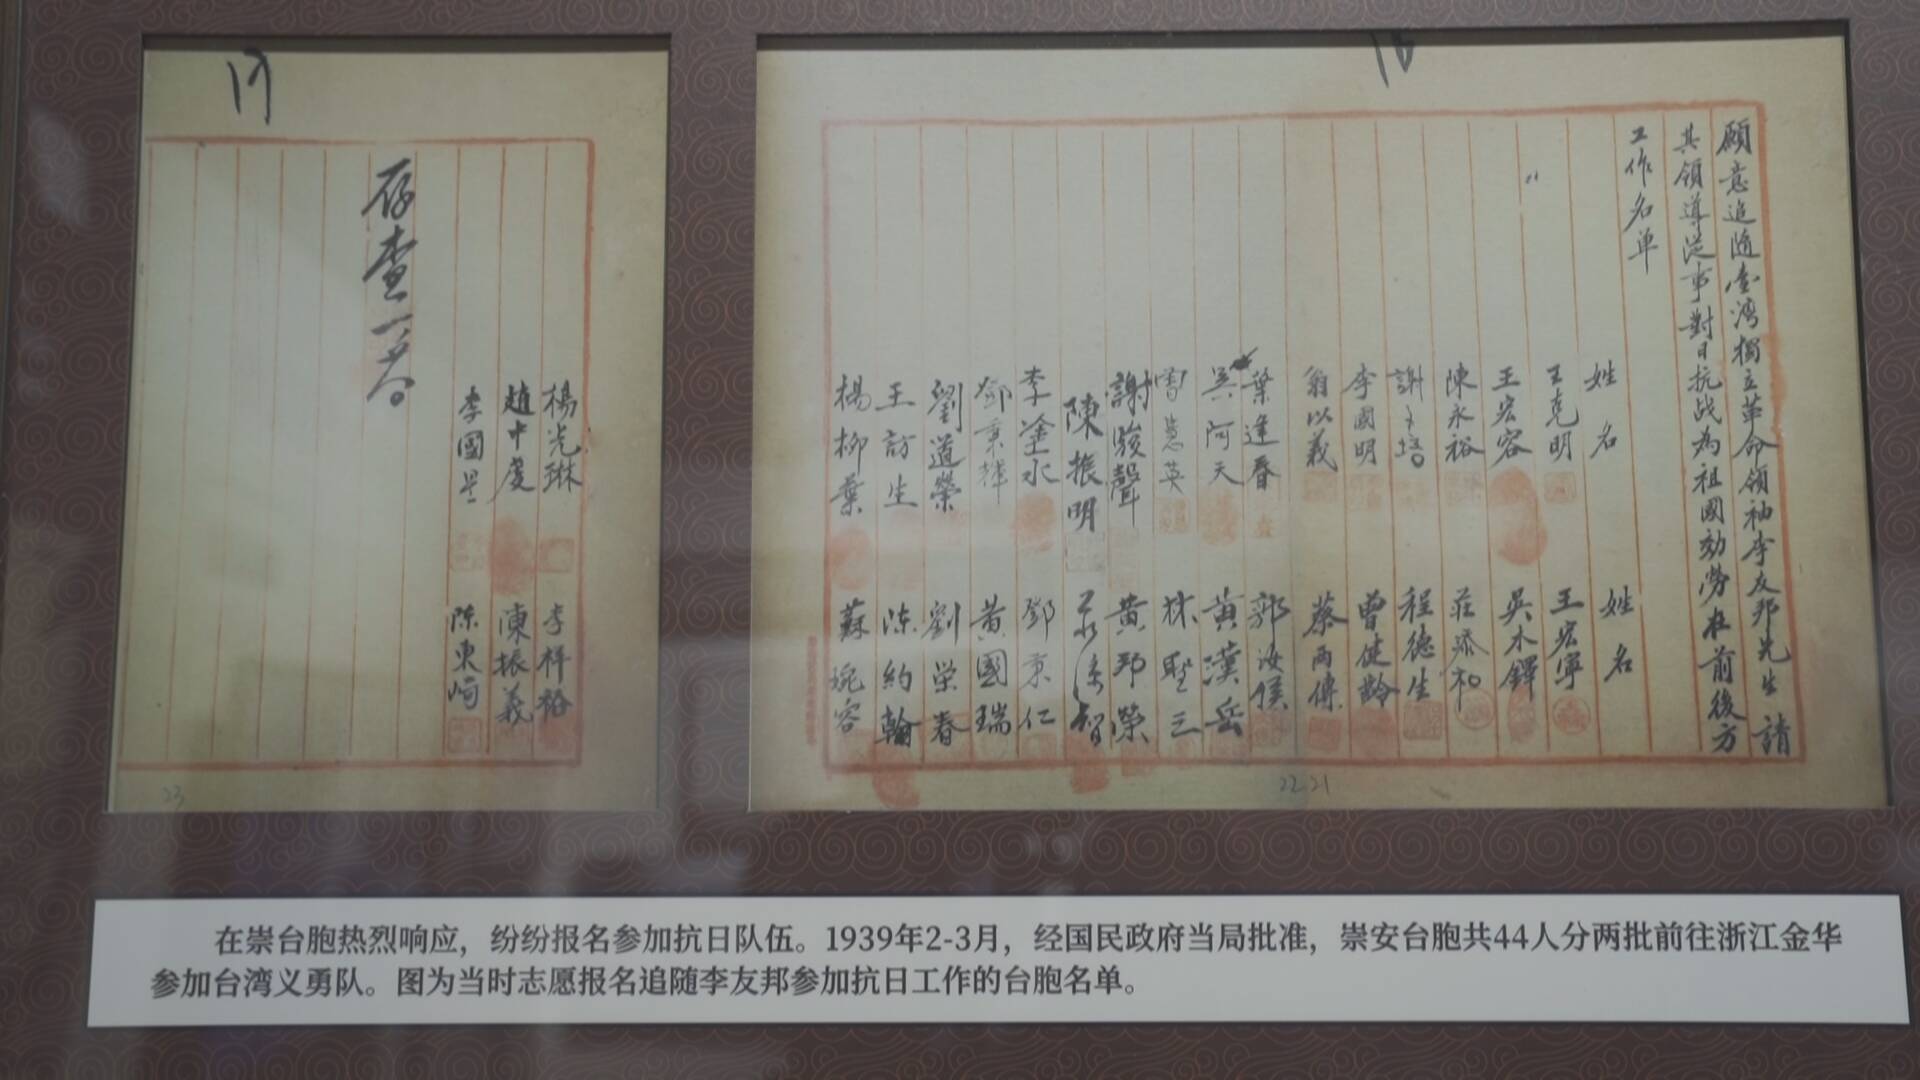 願意追隨臺灣獨立革命領袖李友邦先生請
其領導從事對日抗战為祖國効勞在前後方
工作名单
姓名 姓名
王克明 王宏寧
王宏容 吳木鐸
陳永裕 莊添和
謝 培 程德生
李國明 曾健齡
翁以義 蔡雨傳
葉逢春 郭汝侯
吳阿天 黃漢岳
雷惠英 林聖三
謝駿聲 黃邦榮
陳振明
李塗水 鄧東仁
鄧東輝 黃國瑞
劉道榮 劉榮春
王訪生 陈約翰
楊柳葉 蘇婉容
楊光琳 李祥裕
趙中慶 陳振義
李國 陈東崎
存查
16
17
22 21
23
在崇台胞热烈响应，纷纷报名参加抗日队伍。1939年2-3月，经国民政府当局批准，崇安台胞共44人分两批前往浙江金华
参加台湾义勇队。图为当时志愿报名追随李友邦参加抗日工作的台胞名单。